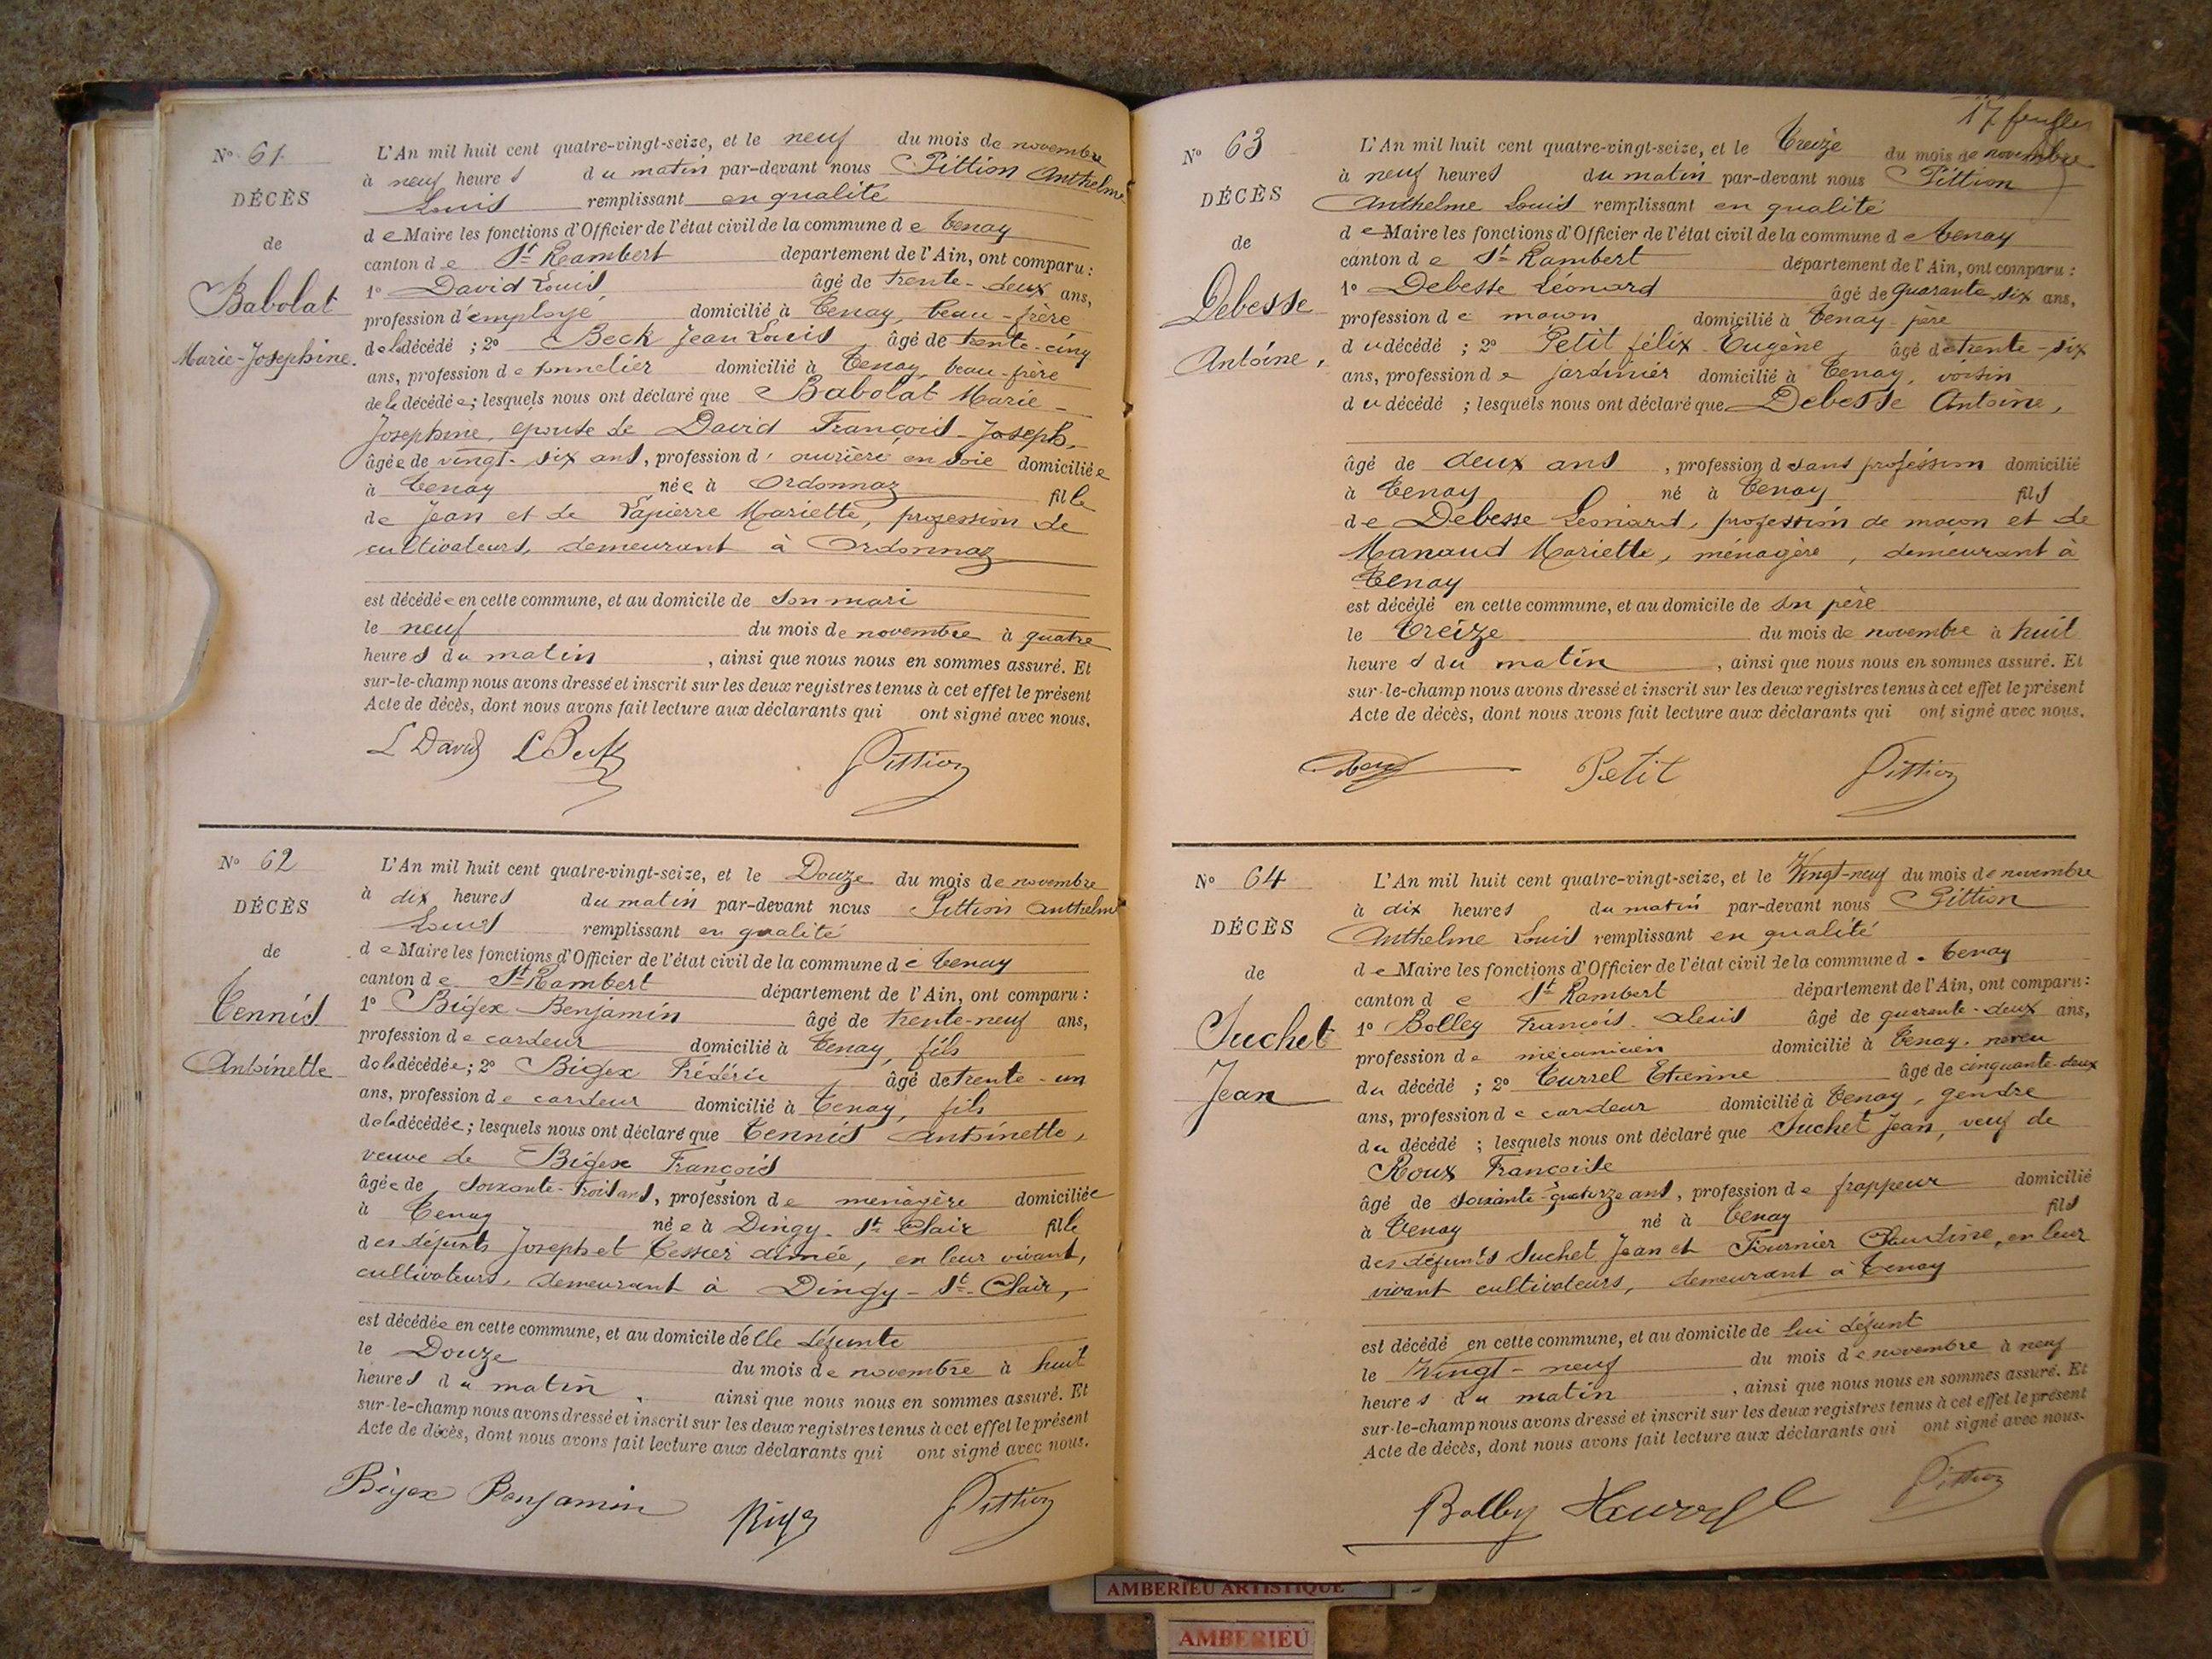 N° 61
DÉCÈS
de
Babolat
Marie-Josephine.
L'An mil huit cent quatre-vingt-seize, et le neuf du mois de novembre
à neuf heures du matin par-devant nous Pittion Anthelme
Louis remplissant en qualité
de Maire les fonctions d'Officier de l'état civil de la commune de Tenay
canton de St Rambert departement de l'Ain, ont comparu :
1° David Louis âgé de trente-deux ans,
profession d'employé domicilié à Tenay, beau-frère
de la décédé ; 2° Beck Jean Louis âgé de trente-cinq
ans, profession de tonnelier domicilié à Tenay, beau-frère
de la décédée ; lesquels nous ont déclaré que Babolat Marie-
Josephine, épouse de David François-Joseph,
âgée de vingt-six ans, profession d'ouvrière en soie domiciliée
à Tenay née à Ordonnaz fille
de Jean et de Lapierre Mariette, profession de
cultivateurs, demeurant à Ordonnaz
est décédée en cette commune, et au domicile de son mari
le neuf du mois de novembre à quatre
heures du matin, ainsi que nous nous en sommes assuré. Et
sur-le-champ nous avons dressé et inscrit sur les deux registres tenus à cet effet le présent
Acte de décès, dont nous avons fait lecture aux déclarants qui ont signé avec nous.
L David L Beck Pittion
N° 62
DÉCÈS
de
Tennis
Antoinette
L'An mil huit cent quatre-vingt-seize, et le Douze du mois de novembre
à dix heures du matin par-devant nous Pittion Anthelme
Louis remplissant en qualité
de Maire les fonctions d'Officier de l'état civil de la commune de Tenay
canton de St Rambert département de l'Ain, ont comparu :
1° Bigex Benjamin âgé de trente-neuf ans,
profession de cardeur domicilié à Tenay, fils
de la décédée ; 2° Bigex Frédéric âgé de trente-un
ans, profession de cardeur domicilié à Tenay, fils
de la décédée ; lesquels nous ont déclaré que Tennis Antoinette,
veuve de Bigex François
âgée de soixante-trois ans, profession de menàgère domiciliée
à Tenay née à Dingy-St-Clair fille
des défunts Joseph et Tessier aimée, en leur vivant,
cultivateurs, demeurant à Dingy-St-Clair,
est décédée en cette commune, et au domicile d'elle défunte
le Douze du mois de novembre à huit
heures du matin, ainsi que nous nous en sommes assuré. Et
sur-le-champ nous avons dressé et inscrit sur les deux registres tenus à cet effet le présent
Acte de décès, dont nous avons fait lecture aux déclarants qui ont signé avec nous.
Bigex Benjamin Bigex Pittion
17 feuillet
N° 63
DÉCÈS
de
Debesse
Antoine,
L'An mil huit cent quatre-vingt-seize, et le Treize du mois de novembre
à neuf heures du matin par-devant nous Pittion
Anthelme Louis remplissant en qualité
de Maire les fonctions d'Officier de l'état civil de la commune de Tenay
canton de St Rambert département de l'Ain, ont comparu :
1° Debesse Léonard âgé de quarante-six ans,
profession de maçon domicilié à Tenay père
du décédé ; 2° Petit félix-Eugène âgé de trente-six
ans, profession de jardinier domicilié à Tenay, voisin
du décédé ; lesquels nous ont déclaré que Debesse Antoine,
âgé de deux ans, profession d sans profession domicilié
à Tenay né à Tenay fils
de Debesse Léonard, profession de maçon et de
Manaud Mariette, ménagère, demeurant à
Tenay
est décédé en cette commune, et au domicile de son père
le Treize du mois de novembre à huit
heures du matin, ainsi que nous nous en sommes assuré. Et
sur-le-champ nous avons dressé et inscrit sur les deux registres tenus à cet effet le présent
Acte de décès, dont nous avons fait lecture aux déclarants qui ont signé avec nous.
Petit Pittion
N° 64
DÉCÈS
de
Suchet
Jean
L'An mil huit cent quatre-vingt-seize, et le Vingt-neuf du mois de novembre
à dix heures du matin par-devant nous Pittion
Anthelme Louis remplissant en qualité
de Maire les fonctions d'Officier de l'état civil de la commune de Tenay
canton de St Rambert département de l'Ain, ont comparu :
1° Bolley François-alexis âgé de quarante-deux ans,
profession de mécanicien domicilié à Tenay, neveu
du décédé ; 2° Turrel Etienne âgé de cinquante-deux
ans, profession de cardeur domicilié à Tenay, gendre
du décédé ; lesquels nous ont déclaré que Suchet Jean, veuf de
Roux Françoise
âgé de soixante-quatorze ans, profession de frappeur domicilié
à Tenay né à Tenay fils
des défunts Suchet Jean et Fournier Claudine, en leur
vivant cultivateurs, demeurant à Tenay
est décédé en cette commune, et au domicile de lui défunt
le Vingt-neuf du mois de novembre à neuf
heures du matin, ainsi que nous nous en sommes assuré. Et
sur-le-champ nous avons dressé et inscrit sur les deux registres tenus à cet effet le présent
Acte de décès, dont nous avons fait lecture aux déclarants qui ont signé avec nous.
Bolley Pittion
AMBERIEU ARTISTIQUE
AMBERIEU